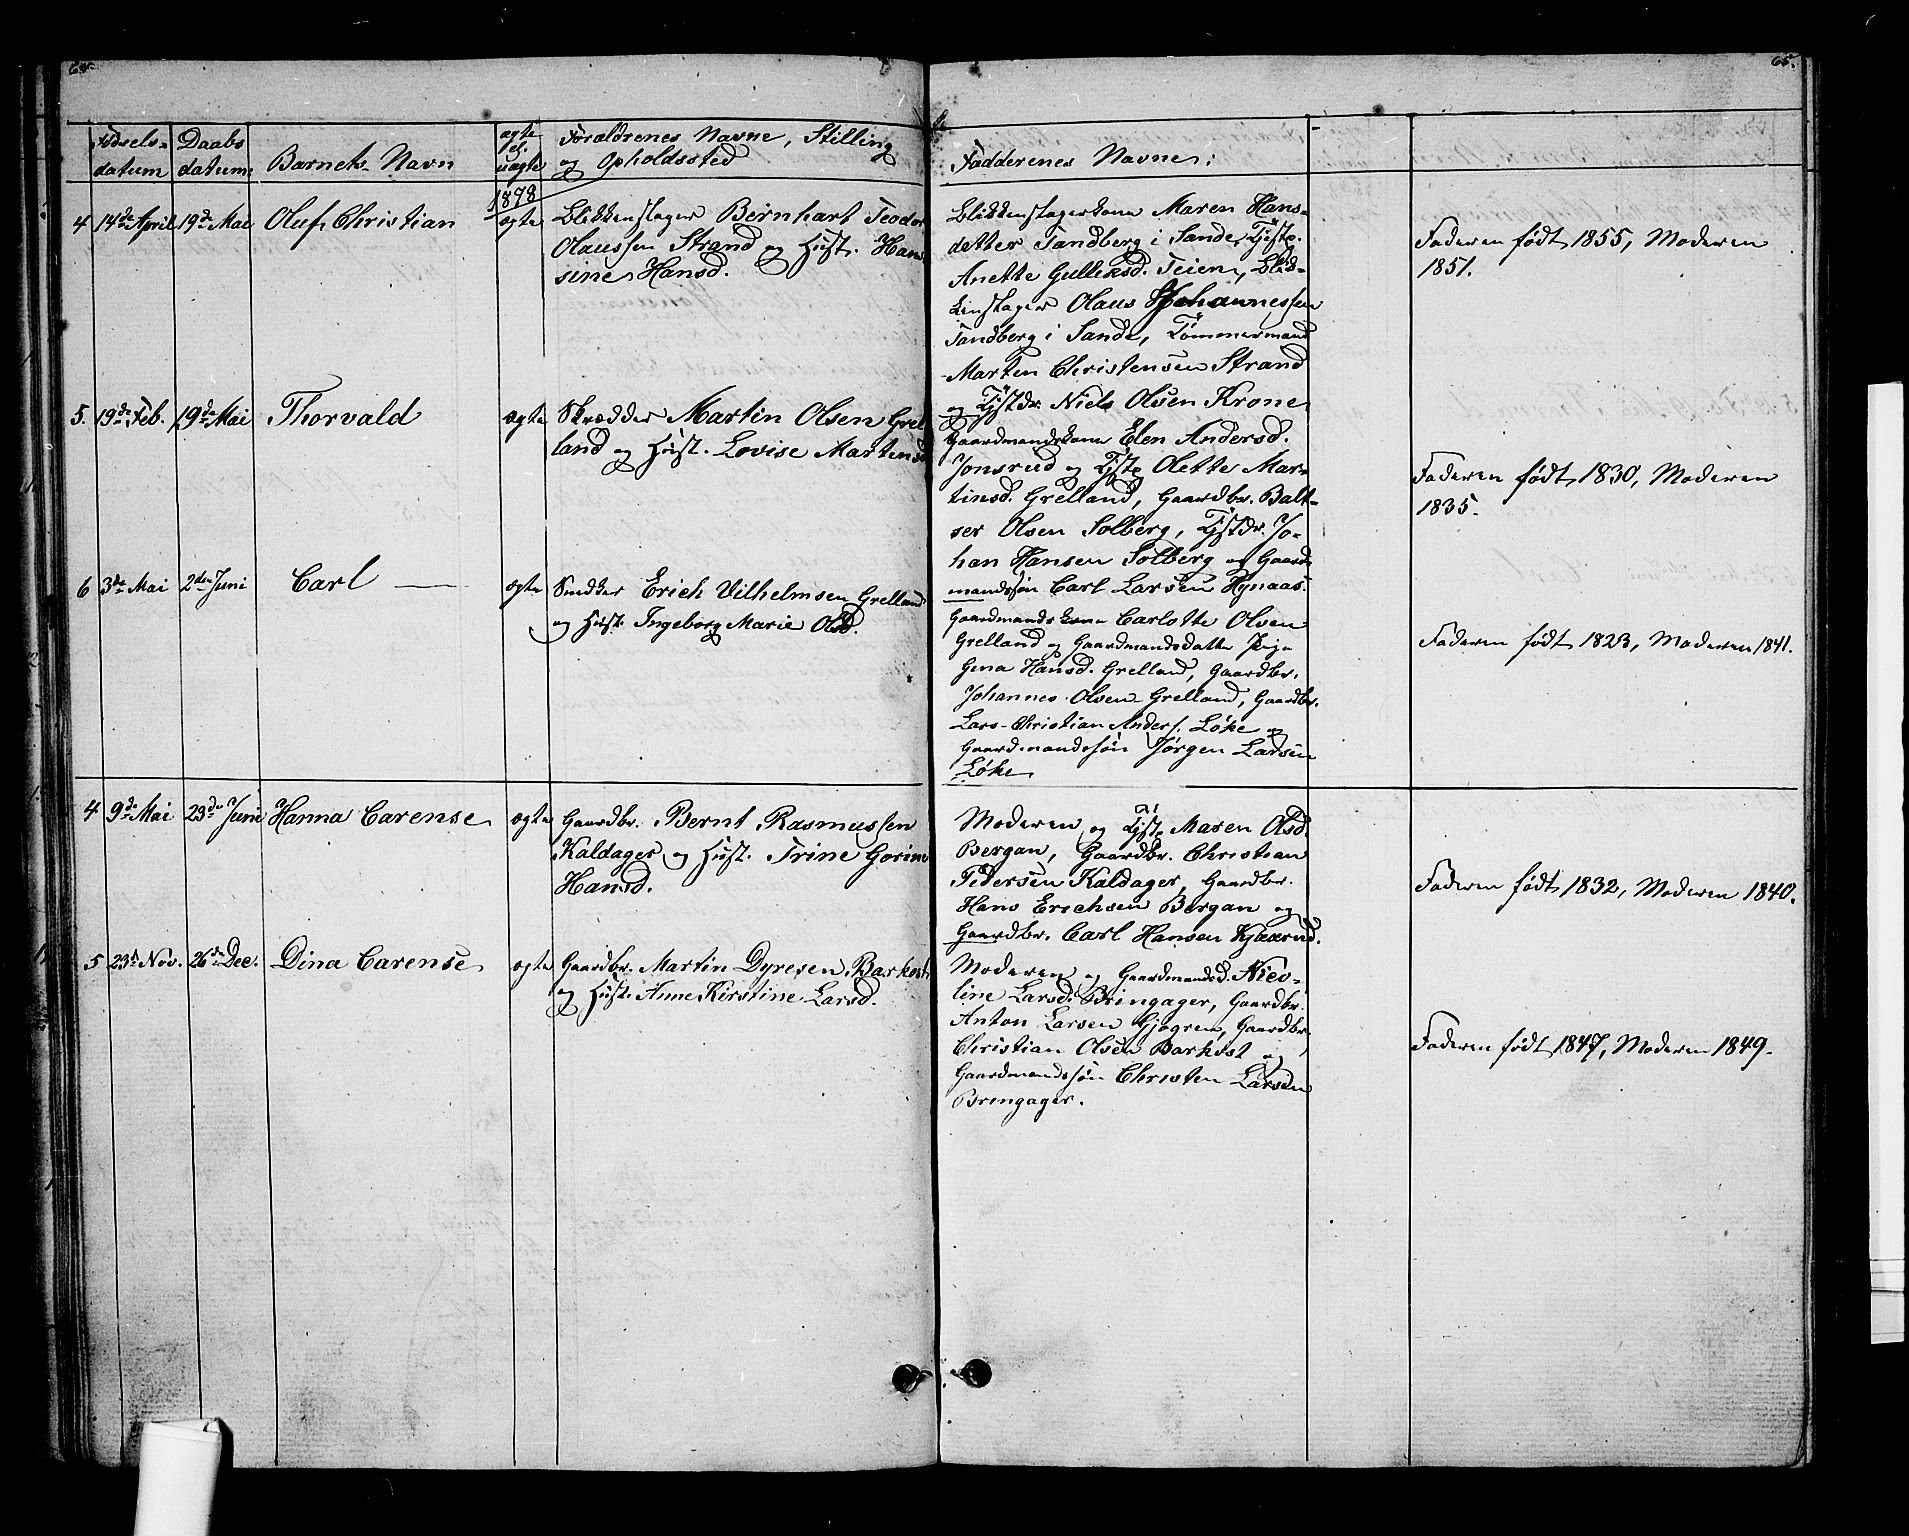 64.
Fødsels-
datum
Daabs
datum:
Barnets Navn
ægte
el.
uægte
Forældrenes Navne, Stilling
og Opholdssted
1878
4 14de April 19de Mai Oluf Christian ægte Blikkenslager Bernhart Teodor
Olaussen Strand og Hust. Han-
sine Hansd.
5. 19de Feb. 19de Mai Thorvald ægte Skrædder Martin Olsen Grel-
land og Hust. Lovise Martensd.
6 3de Mai 2den Juni Carl ægte Smedker Erich Vilhelmsen Grelland
og Hust. Ingeborg Marie Olsd.
4 9de Mai 23de Juni Hanna Carense ægte Gaardbr. Bernt Rasmussen
Kaldager og Hust. Trine Gorine
Hansd.
5 23de Nov. 26de Dec. Dina Carense ægte Gaardbr. Martin Dyresen Barkost
og Hust. Anne Kirstine Larsd.
65.
Fadderenes Navne:
Blikkenslagerkone Maren Hans-
detter Sandberg i Sande, Tjste.
Anette Gulliksd. Teien, Blik-
kenslager Olaus Johannessen
Sandberg i Sande, Tømmermand
Marten Christensen Strand
og Tjstdr. Niels Olsen Krone
Faderen født 1855, Moderen
1851.
Gaardmandskone Elen Andersd.
Jonsrud og Tjste Olette Mar-
tinsd. Grelland, Gaardbr. Balt-
ser Olsen Solberg, Tjstdr. Jo-
han Hansen Solberg og Gaard-
mandssøn Carl Larsen Hynaas.
Faderen født 1830, Moderen
1835.
Gaardmandskone Carlotte Olsen
Grelland og Gaardmandsdatter
Gina Hansd. Grelland, Gaardbr.
Johannes Olsen Grelland, Gaardbr.
Lars Christian Anders. Løke og
Gaardmandssøn Jørgen Larsen
Løke
Faderen født 1823, Moderen 1841.
Moderen og Tjste Maren Olsd.
Bergan, Gaardbr. Christian
Pedersen Kaldager, Gaardbr.
Hans Erichsen Bergan og
Gaardbr. Carl Hansen Kjærud.
Faderen født 1832, Moderen 1840.
Moderen og Gaardmandsd. Nico-
line Larsd. Bringager, Gaardbr.
Anton Larsen Gjøgren, Gaardbr.
Christian Olsen Barkost og
Gaardmandssøn Christen Larsen
Bringager.
Faderen født 1847, Moderen 1849.